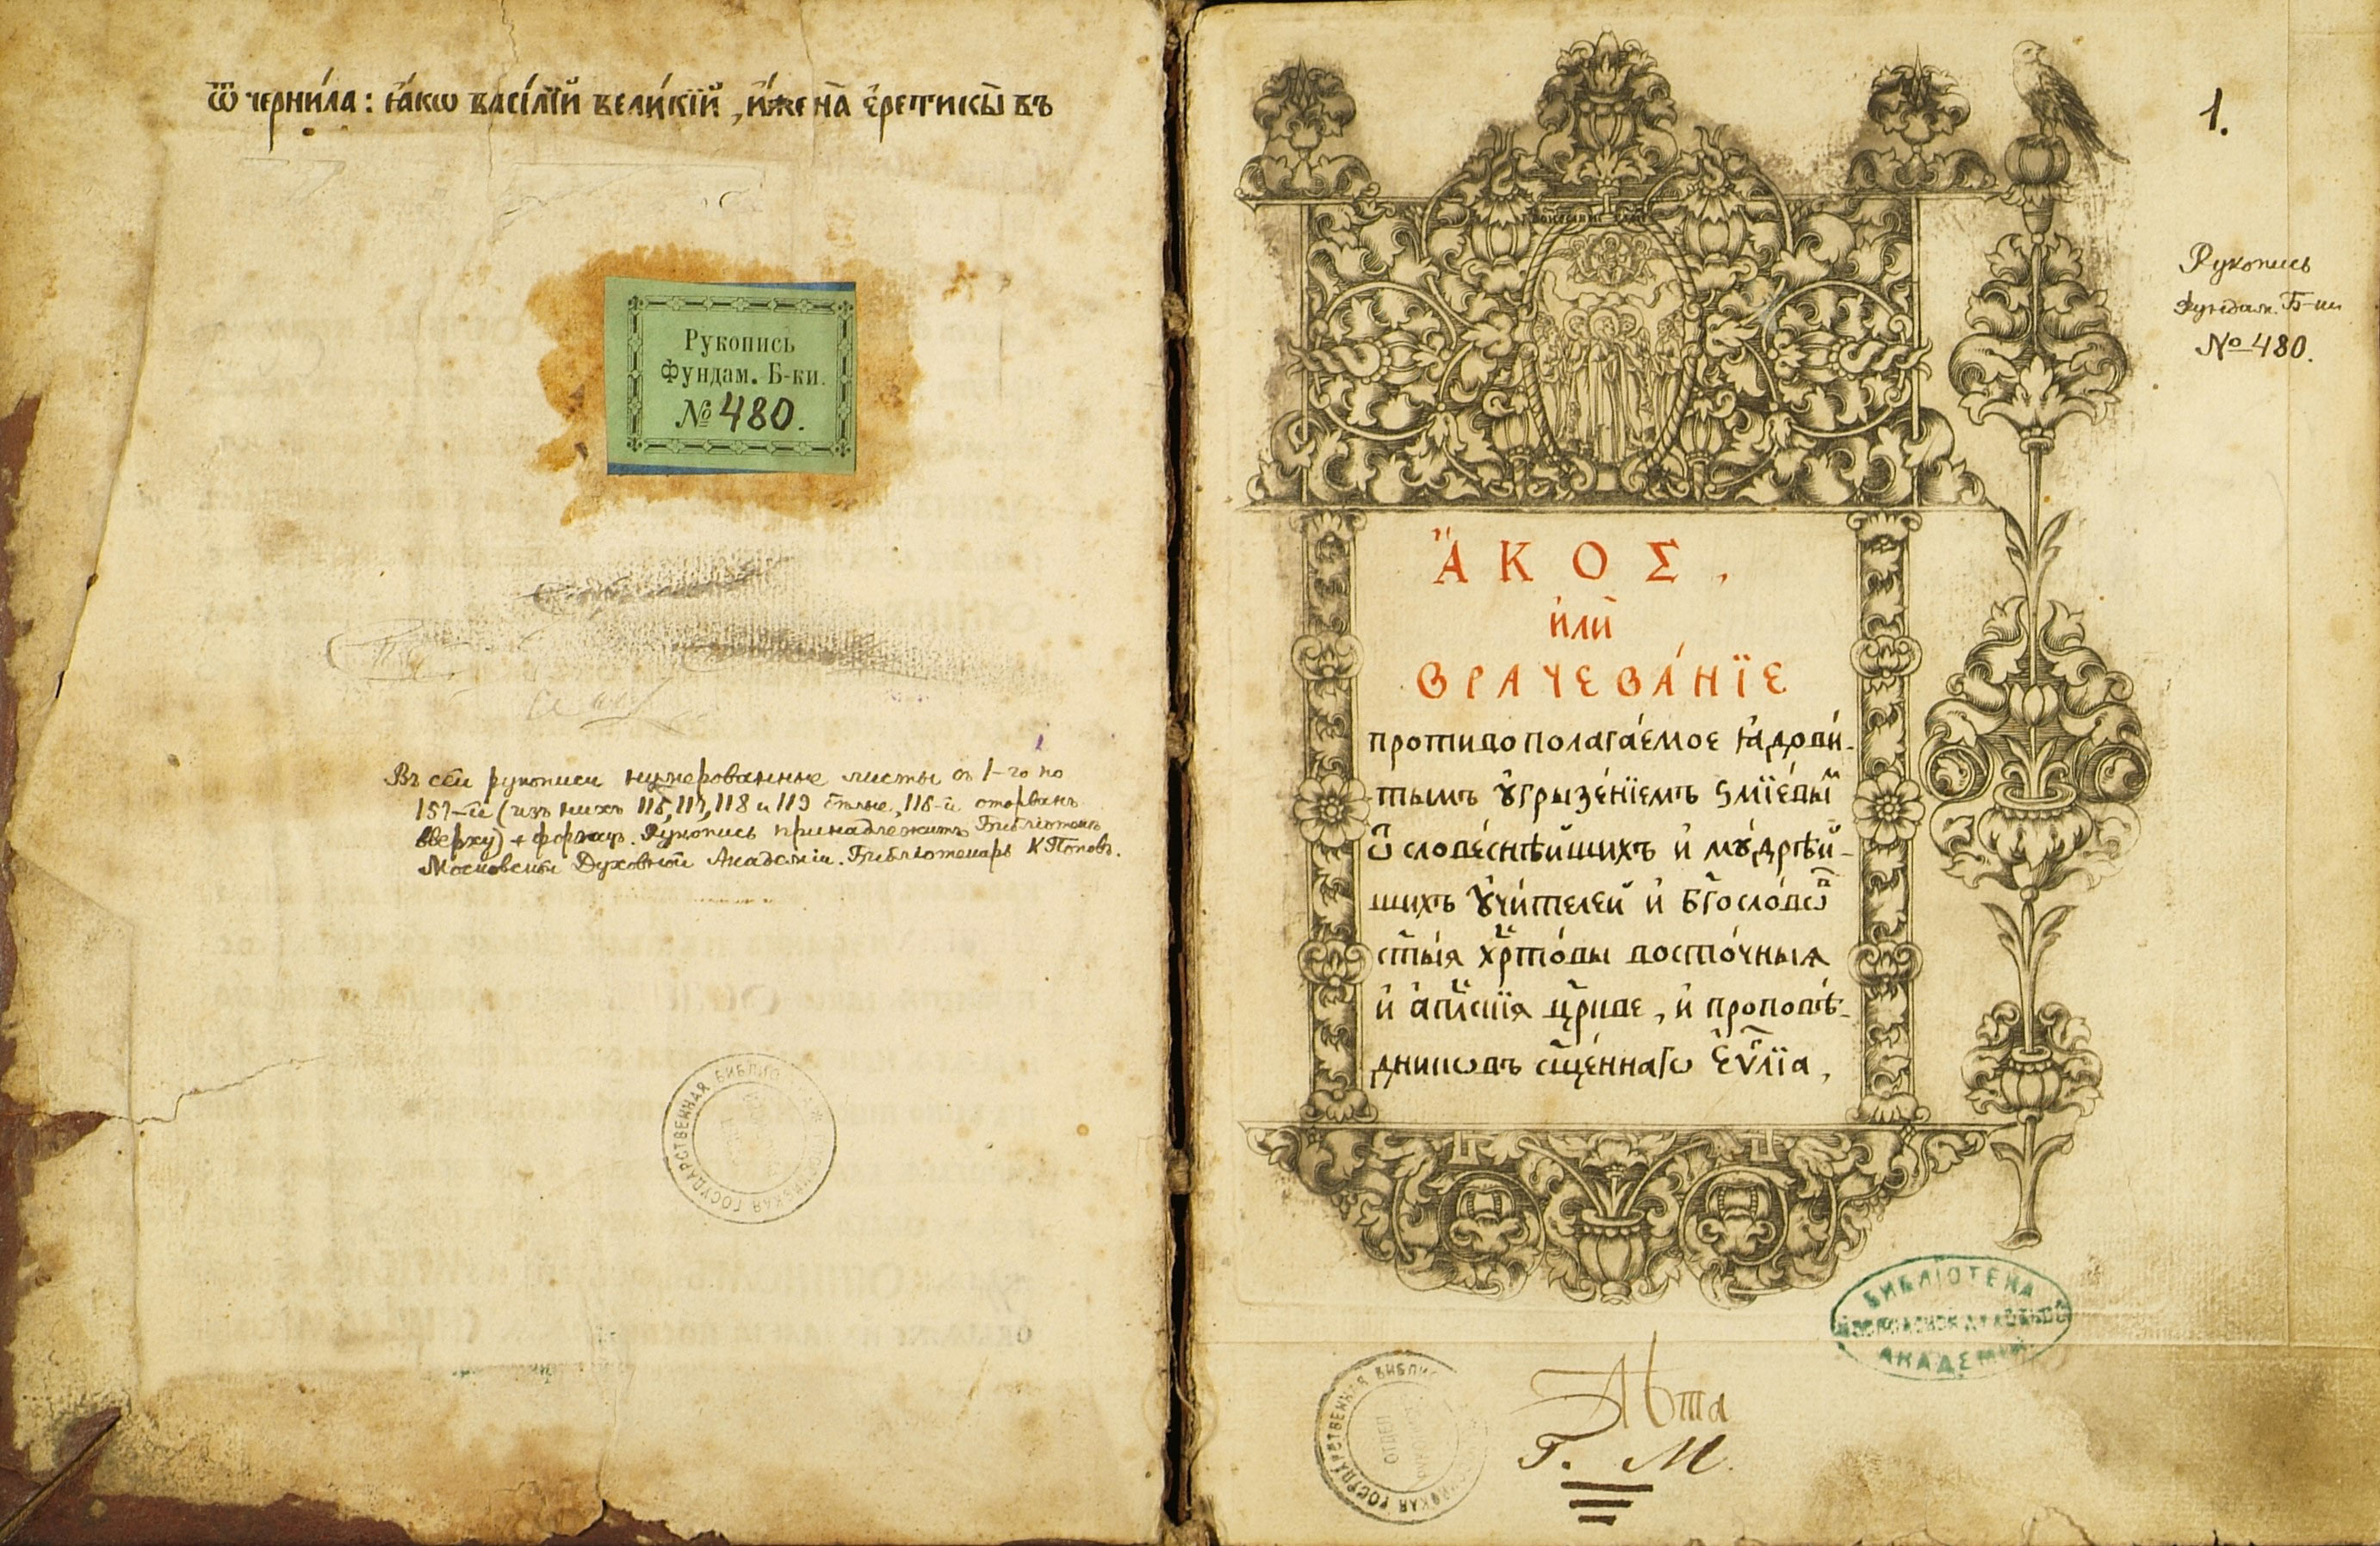 ѿ черни́ла: ꙗ҆́кѡ васі́лїй вели́кїй, и҆́же на̀ є҆ретикѝ въ
Рукопись
Фундам. Б-ки.
№ 480.
Въ сей рукописи нумерованные листы съ 1-го по
157-й (изъ нихъ 115, 117, 118 и 119 бѣлые, 116-й оторванъ
вверху) + форзацъ. Рукопись принадлежитъ Библіотекѣ
Московской Духовной Академіи. Библіотекарь К Поповъ.
ГОСУДАРСТВЕННАЯ БИБЛІО
1.
Рукопись
Фундам. Б-ки
№ 480.
А҆́КОΣ,
и҆лѝ
ВРАЧЕВА́НЇЕ
противополага́емое ꙗ҆дови́-
тымъ ᲂу҆грызе́нїємъ ѕмїє́вымъ
Ѿ слове́снѣйшихъ и҆ мꙋ́дрѣй-
шихъ ᲂу҆чи́телей и҆ бг҃осло́вѡв
ст҃ы́ѧ хрⷭ҇то́вы восто́чныѧ
и҆ а҆пⷭ҇лскїѧ цр҃кве, и҆ проповѣ́-
дникѡвъ сщ҃е́ннагѡ є҆ѵⷢ҇лїа,
БИБЛІОТЕКА
МОСКОВСКОЙ ДУХОВНОЙ
АКАДЕМІИ
ГОСУДАРСТВЕННАЯ БИБЛИ
ОТДЕЛ
Лѣта
Г. М.